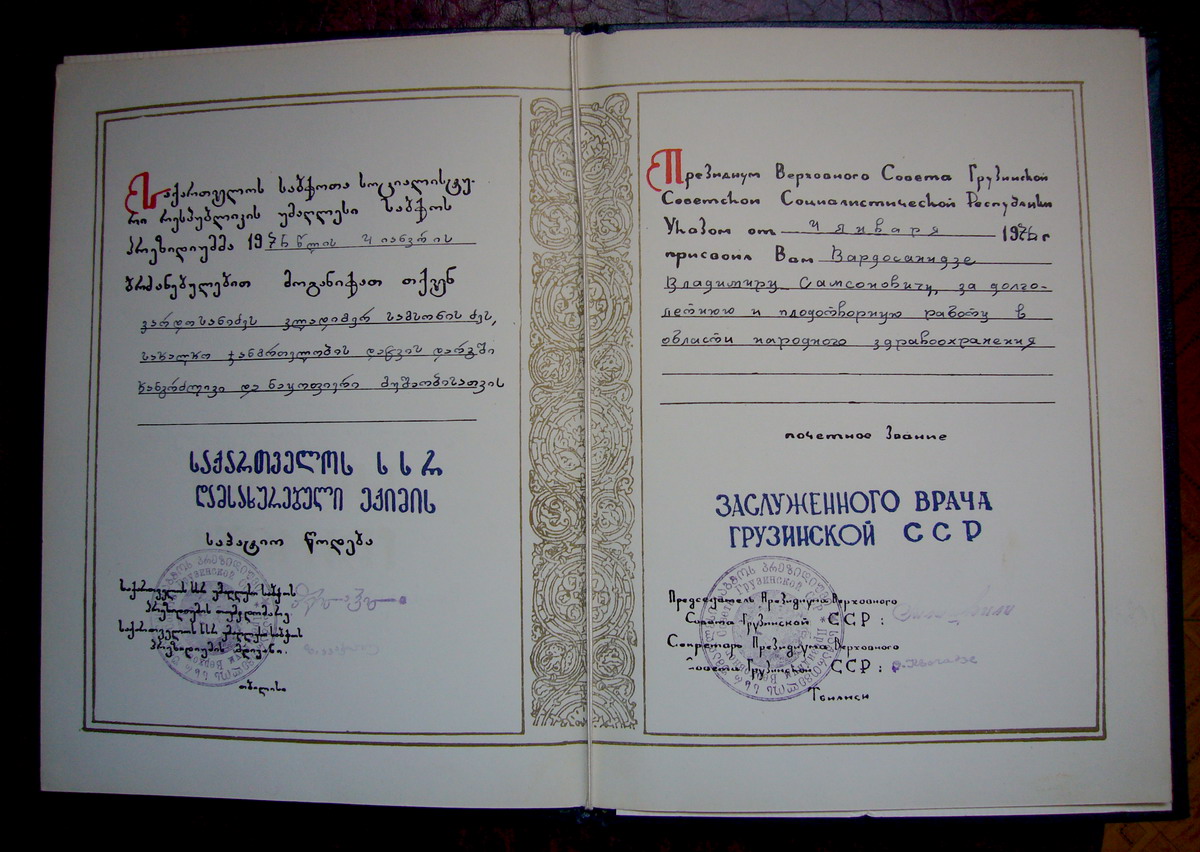 საქართველოს საბჭოთა სოციალისტუ-
რი რესპუბლიკის უმაღლესი საბჭოს
პრეზიდიუმმა 1976 წლის 4 იანვრის
ბრძანებულებით მოგანიჭათ თქვენ
ვარდოსანიძეს ვლადიმერ სამსონის ძეს,
სახალხო ჯანმრთელობის დაცვის დარგში
ხანგრძლივი და ნაყოფიერი მუშაობისათვის
საქართველოს ს ს რ
დამსახურებული ექიმის
საპატიო წოდება
საქართველოს სსრ უმაღლესი საბჭოს
პრეზიდიუმის თავმჯდომარე
საქართველოს სსრ უმაღლესი საბჭოს
პრეზიდიუმის მდივანი.
თბილისი
Президиум Верховного Совета Грузинской
Советской Социалистической Республики
Указом от 4 января 1976 г
присвоил Вам Вардосанидзе
Владимиру Самсоновичу, за долго-
летнюю и плодотворную работу в
области народного здравоохранения
почетное звание
ЗАСЛУЖЕННОГО ВРАЧА
ГРУЗИНСКОЙ С С Р
Председатель Президиума Верховного
Совета Грузинской С С Р :
Секретарь Президиума Верховного
Совета Грузинской С С Р :
Тбилиси